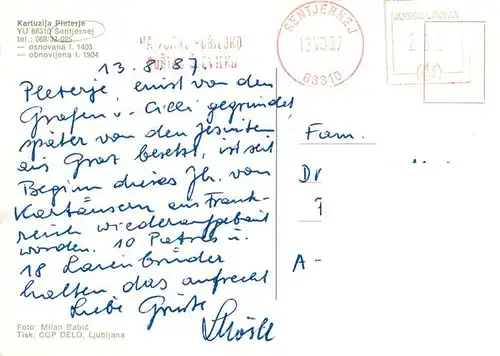 Kartuzija Pleterje
YU 68310 Šentjernej
tel.: 068/82-025
— osnovana l. 1403
— obnovljena l. 1904
ŠENTJERNEJ
13.VIII.87
68310
JUGOSLAVIJA
13. 8. 87
Pleterje, einst von den
Grafen v. Cilli gegründet,
später von den Jesuiten
aus Graz besetzt, ist seit
Beginn dieses Jh. von
Kartäusern aus Frank-
reich wiederaufgebaut
worden. 10 Patres u.
18 Laienbrüder
halten das aufrecht
Liebe Grüße
Fam.
Dr
A -
Foto: Milan Babič
Tisk: ČGP DELO, Ljubljana